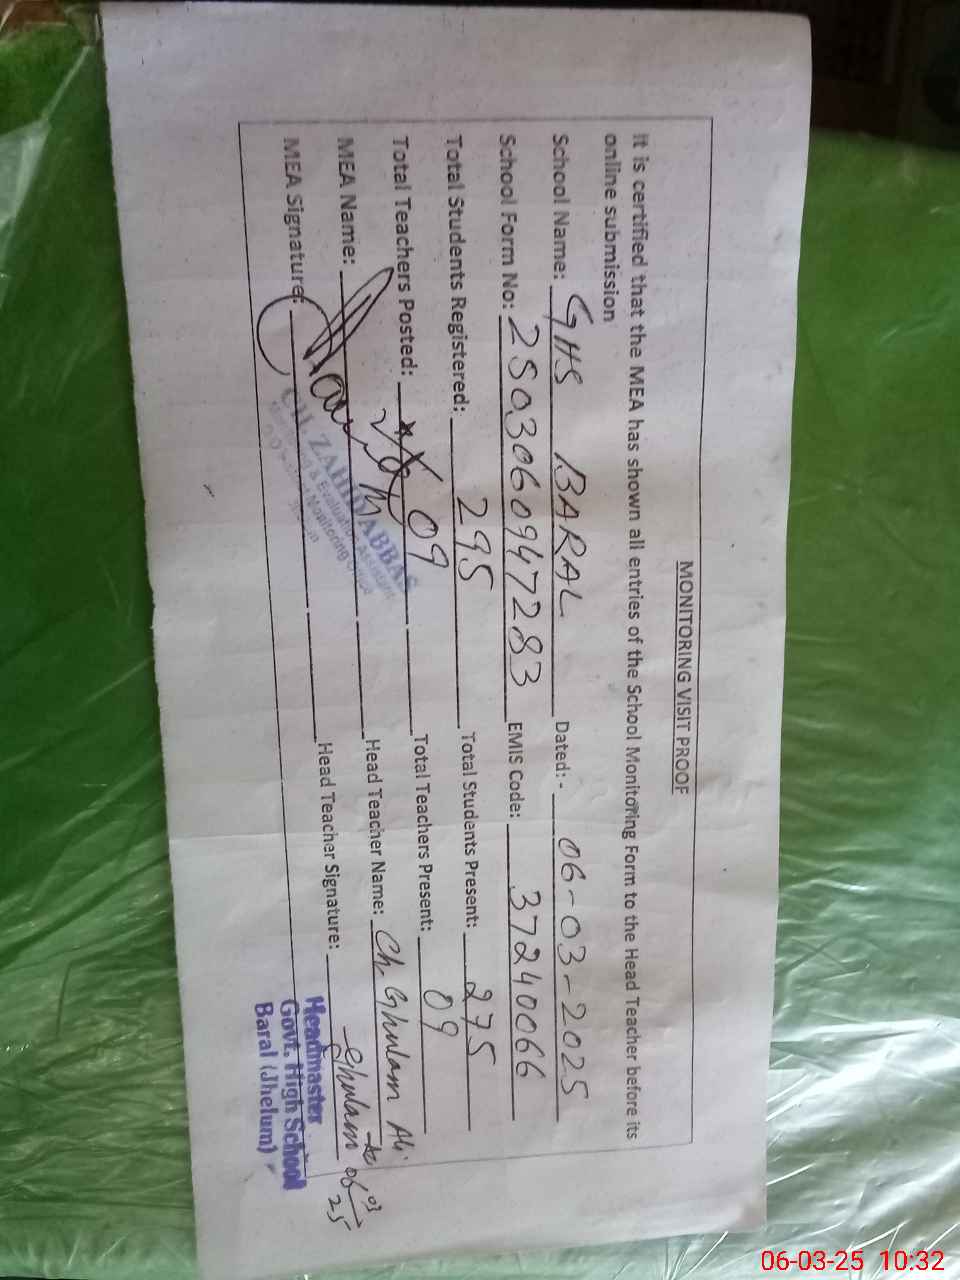 MONITORING VISIT PROOF
It is certified that the MEA has shown all entries of the School Monitoring Form to the Head Teacher before its
online submission
School Name: GHS BARAL Dated:- 06-03-2025
School Form No: 2503060947283 EMIS Code: 37240066
Total Students Registered: 295 Total Students Present: 275
Total Teachers Posted: 09 Total Teachers Present: 09
MEA Name: Head Teacher Name: Ch. Ghulam Ali
MEA Signature: Head Teacher Signature: Ghulam
06/03/25
CH. ZAHID ABBAS
Monitoring & Evaluation Assistant
Monitoring Office
Headmaster
Govt. High School
Baral (Jhelum)
06-03-25 10:32